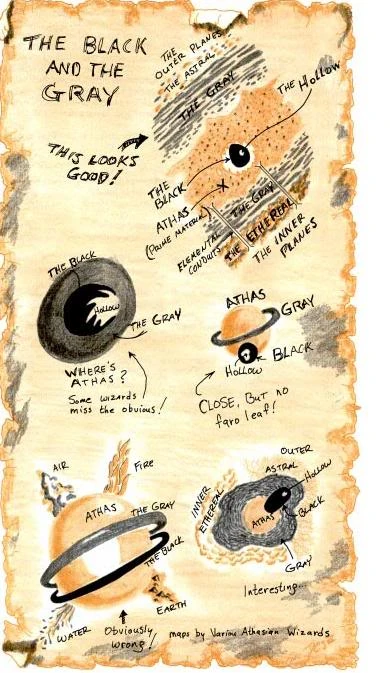 THE BLACK
AND THE
GRAY
THE
OUTER PLANES
THE ASTRAL
THE GRAY
THE HOLLOW
THIS LOOKS
GOOD!
THE
BLACK
ATHAS
(PRIME MATERIAL)
ELEMENTAL
CONDUITS
THE GRAY
THE ETHEREAL
THE INNER
PLANES
THE BLACK
Hollow
THE GRAY
WHERE'S
ATHAS?
Some wizards
miss the obvious!
ATHAS
GRAY
BLACK
Hollow
CLOSE, BUT NO
faro leaf!
AIR
Fire
ATHAS
THE GRAY
THE BLACK
EARTH
WATER
Obviously
wrong!
OUTER
ASTRAL
HOLLOW
INNER
ETHEREAL
ATHAS
BLACK
GRAY
Interesting...
maps by Various Athasian Wizards